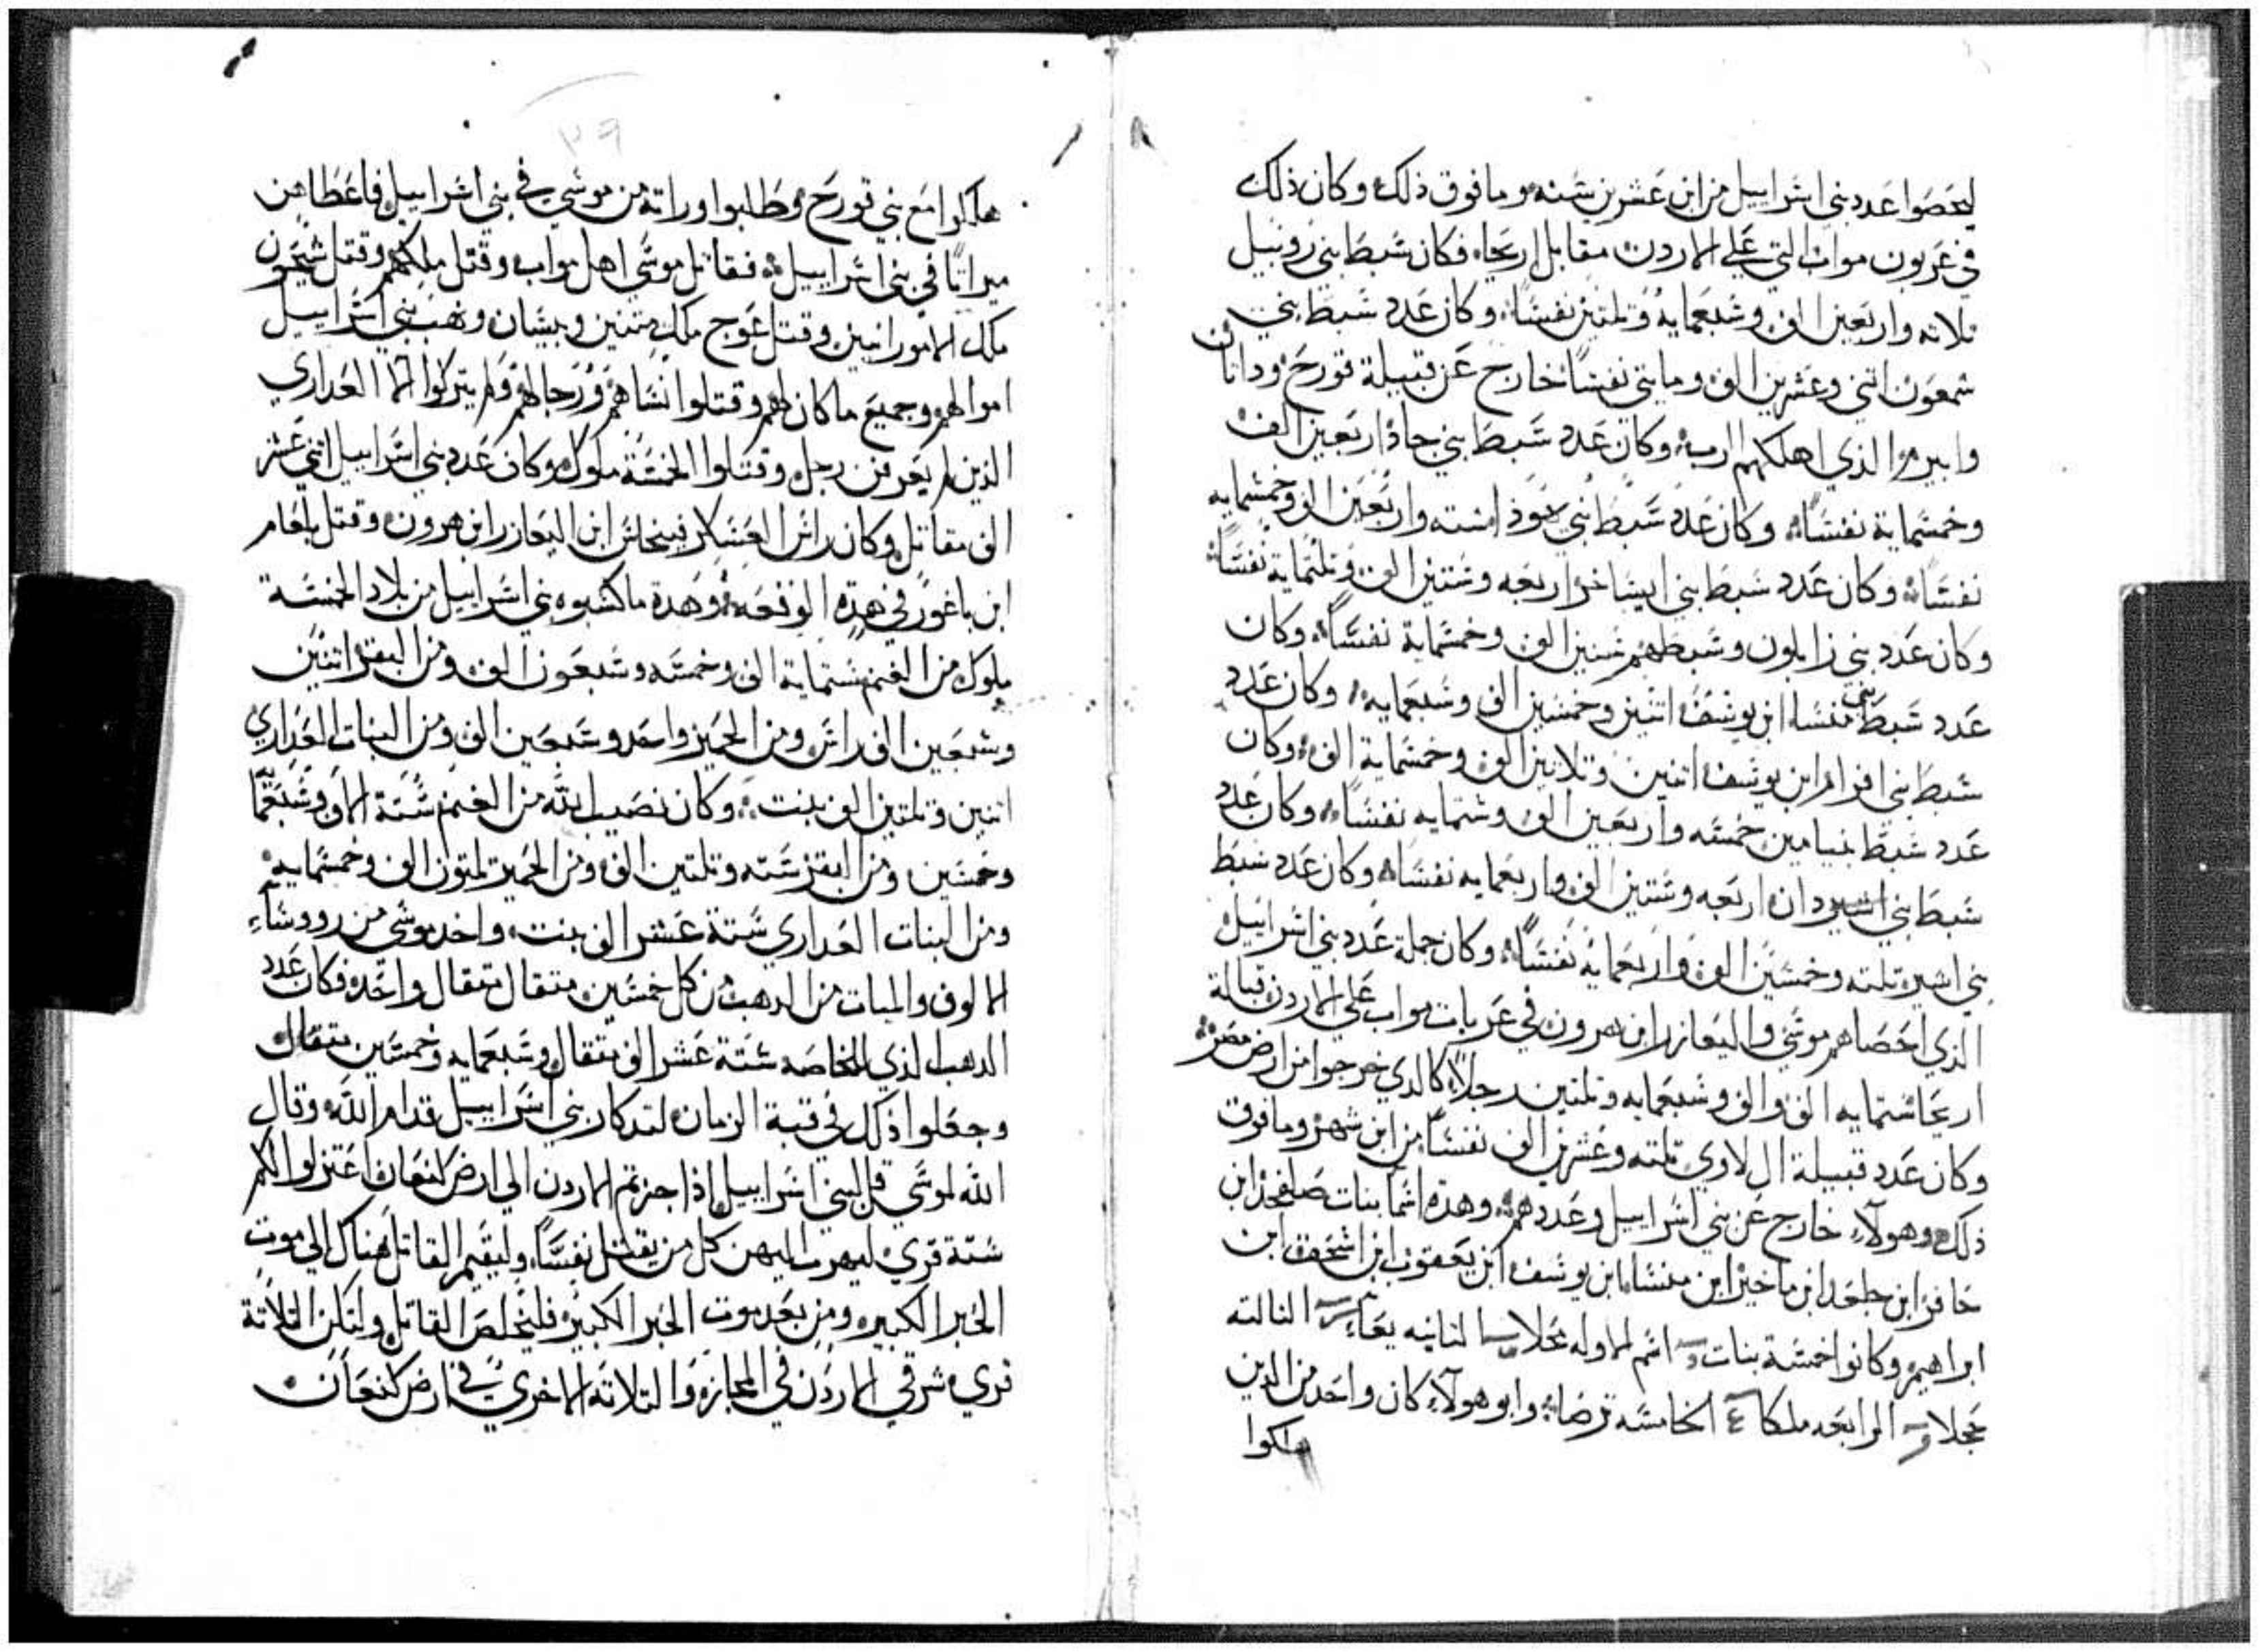 ليحصوا عدد بني اسراييل من ابن عشرين سنه وما فوق ذلك وكان ذلك
في عربون مواب التي علي الاردن مقابل اريحا، فكان سبط بني روبيل
تلاته واربعين الف وسبعمايه وتلتين نفسًا، وكان عدد سبط بني
شمعون اتني وعشرين الف ومايتي نفسًا خارج عن قبيلة قورح وداتان
وابيرم الذي اهلكهم الرب، وكان عدد سبط بني جاد اربعين الف
وخمسماية نفسًا، وكان عدد سبط بني يهوذا سته واربعين الف وخمسمايه
نفسًا، وكان عدد سبط بني ايساخر اربعه وستين الف وتلتماية نفسًا
وكان عدد بني زابلون وسبطهم ستين الف وخمسماية نفسًا، وكان
عدد سبط بني منسا ابن يوسف اتنين وخمسين الف وسبعمايه، وكان عدد
سبط بني افرام ابن يوسف اتنين وتلاتين الف وخمسماية الف، وكان
عدد سبط بنيامين خمسه واربعين الف وستمايه نفسًا، وكان عدد
سبط بني دان اربعه وستين الف واربعمايه نفسًا، وكان عدد سبط
بني اشير تلته وخمسين الف واربعمايه نفسًا، وكان جملة عدد بني اسراييل
الذي احصاهم موسي واليعازر ابن هرون في عربات مواب علي الاردن قبالة
اريحا ستمايه الف والف وسبعمايه وتلتين رجلًا، كالدي خرجوا من ارض مصر
وكان عدد قبيلة ال لاوي تلته وعشرين الف نفسًا من ابن شهر وما فوق
ذلك وهولآء خارج عن بني اسراييل وعددهم، وهذه اسما بنات صلفحد ابن
حافر ابن جلعد ابن ماخير ابن منسا ابن يوسف ابن يعقوب ابن اسحق ابن
ابراهيم وكانوا خمسة بنات اسم الاوله محلا التانيه التالته
عجلا الرابعه ملكا الخامسه ترصا، وابو هولآء كان واحد من الذين
هلكوا
٣٩
هلكوا مع بني قورح وطلبوا وراتة من موسي في بني اسراييل فاعطاهن
ميراتًا في بني اسراييل، فقاتل موسي اهل مواب وقتل ملكهم وقتل سيحون
ملك الامورانيين وقتل عوج ملك متنين وبيسان ونهب بني اسراييل
اموالهم وجميع ما كان لهم وقتلوا نساهم ورجالهم ولم يتركوا الا العداري
الذين لم يعرفن رجل وقتلوا الخمسة ملوك وكان عدد بني اسراييل اتني عشر
الف مقاتل وكان راس العسكر فينحاس ابن اليعازر ابن هرون وقتل بلعام
ابن باعور في هذه الوقعه، وهدة ما كسبوه بني اسراييل من بلاد الخمسة
ملوك من الغنم ستماية الف وخمسه وسبعون الف ومن البقر اتنين
وسبعين الف راس ومن الحمير واحد وستين الف ومن البنات العداري
اتنين وتلتين الف بنت، وكان نصيب الله من الغنم ستة الاف وسبعما
وخمسين ومن البقر سته وتلتين الف ومن الحمير تلتون الف وخمسمايه
ومن البنات العداري ستة عشر الف بنت، واخد موسي من روساء
الالوف والميات من الدهب من كل خمسين متقال متقال واحد، فكان عدد
الدهب الذي للخاصه ستة عشر الف متقال وسبعمايه وخمسين متقال
وجعلوا ذلك في قبة الزمان لتدكار بني اسراييل قدام الله وقال
الله لموسي قل لبني اسراييل اذا جزتم الاردن الي ارض كنعان اعتزلوا لكم
ستة قري ليهرب اليهن كل من يقتل نفسًا، وليقيم القاتل هناك الي موت
الحبر الكبير، ومن بعد موت الحبر الكبير فليخلص القاتل ولتكن التلاتة
قري شرقي الاردن في المجازه والتلاته الاخري في ارض كنعان